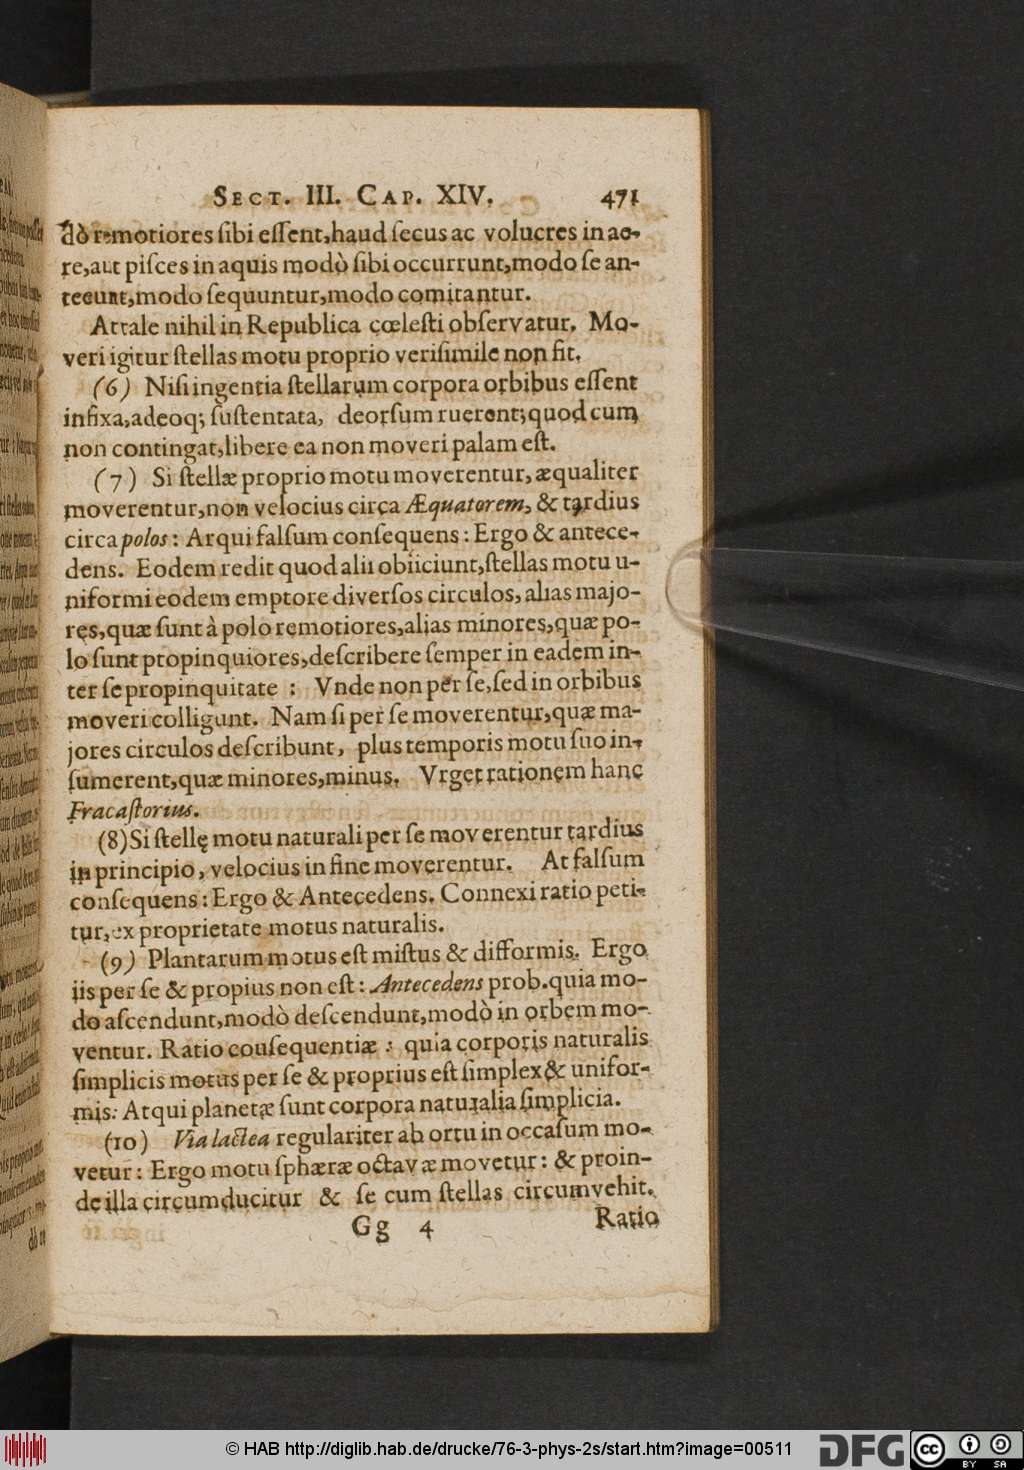 SECT. III. CAP. XIV. 471
dò remotiores sibi essent, haud secus ac volucres in ae-
re, aut pisces in aquis modò sibi occurrunt, modo se an-
tecunt, modo sequuntur, modo comitantur.
At tale nihil in Republica cœlesti observatur. Mo-
veri igitur stellas motu proprio verisimile non fit.
(6) Nisi ingentia stellarum corpora orbibus essent
infixa, adeoq; sustentata, deorsum ruerent; quod cum
non contingat, libere ea non moveri palam est.
(7) Si stellæ proprio motu moverentur, æqualiter
moverentur, non velocius circa Æquatorem, & tardius
circa polos: Atqui falsum consequens: Ergo & antece-
dens. Eodem redit quod alii obiiciunt, stellas motu u-
niformi eodem emptore diversos circulos, alias majo-
res, quæ sunt à polo remotiores, alias minores, quæ po-
lo sunt propinquiores, describere semper in eadem in-
ter se propinquitate : Vnde non per se, sed in orbibus
moveri colligunt. Nam si per se moverentur, quæ ma-
jores circulos describunt, plus temporis motu suo in-
sumerent, quæ minores, minus. Vrget rationem hanc
Fracastorius.
(8) Si stellę motu naturali per se moverentur tardius
in principio, velocius in fine moverentur. At falsum
consequens: Ergo & Antecedens. Connexi ratio peti-
tur, ex proprietate motus naturalis.
(9) Plantarum motus est mistus & difformis. Ergo
iis per se & propius non est: Antecedens prob. quia mo-
do ascendunt, modò descendunt, modò in orbem mo-
ventur. Ratio cousequentiæ : quia corporis naturalis
simplicis motus per se & proprius est simplex & unifor-
mis: Atqui planetæ sunt corpora naturalia simplicia.
(10) Via lactea regulariter ab ortu in occasum mo-
vetur: Ergo motu sphæræ octavæ movetur: & proin-
de illa circumducitur & se cum stellas circumvehit.
Gg 4 Ratio
© HAB http://diglib.hab.de/drucke/76-3-phys-2s/start.htm?image=00511
DFG
cc BY SA